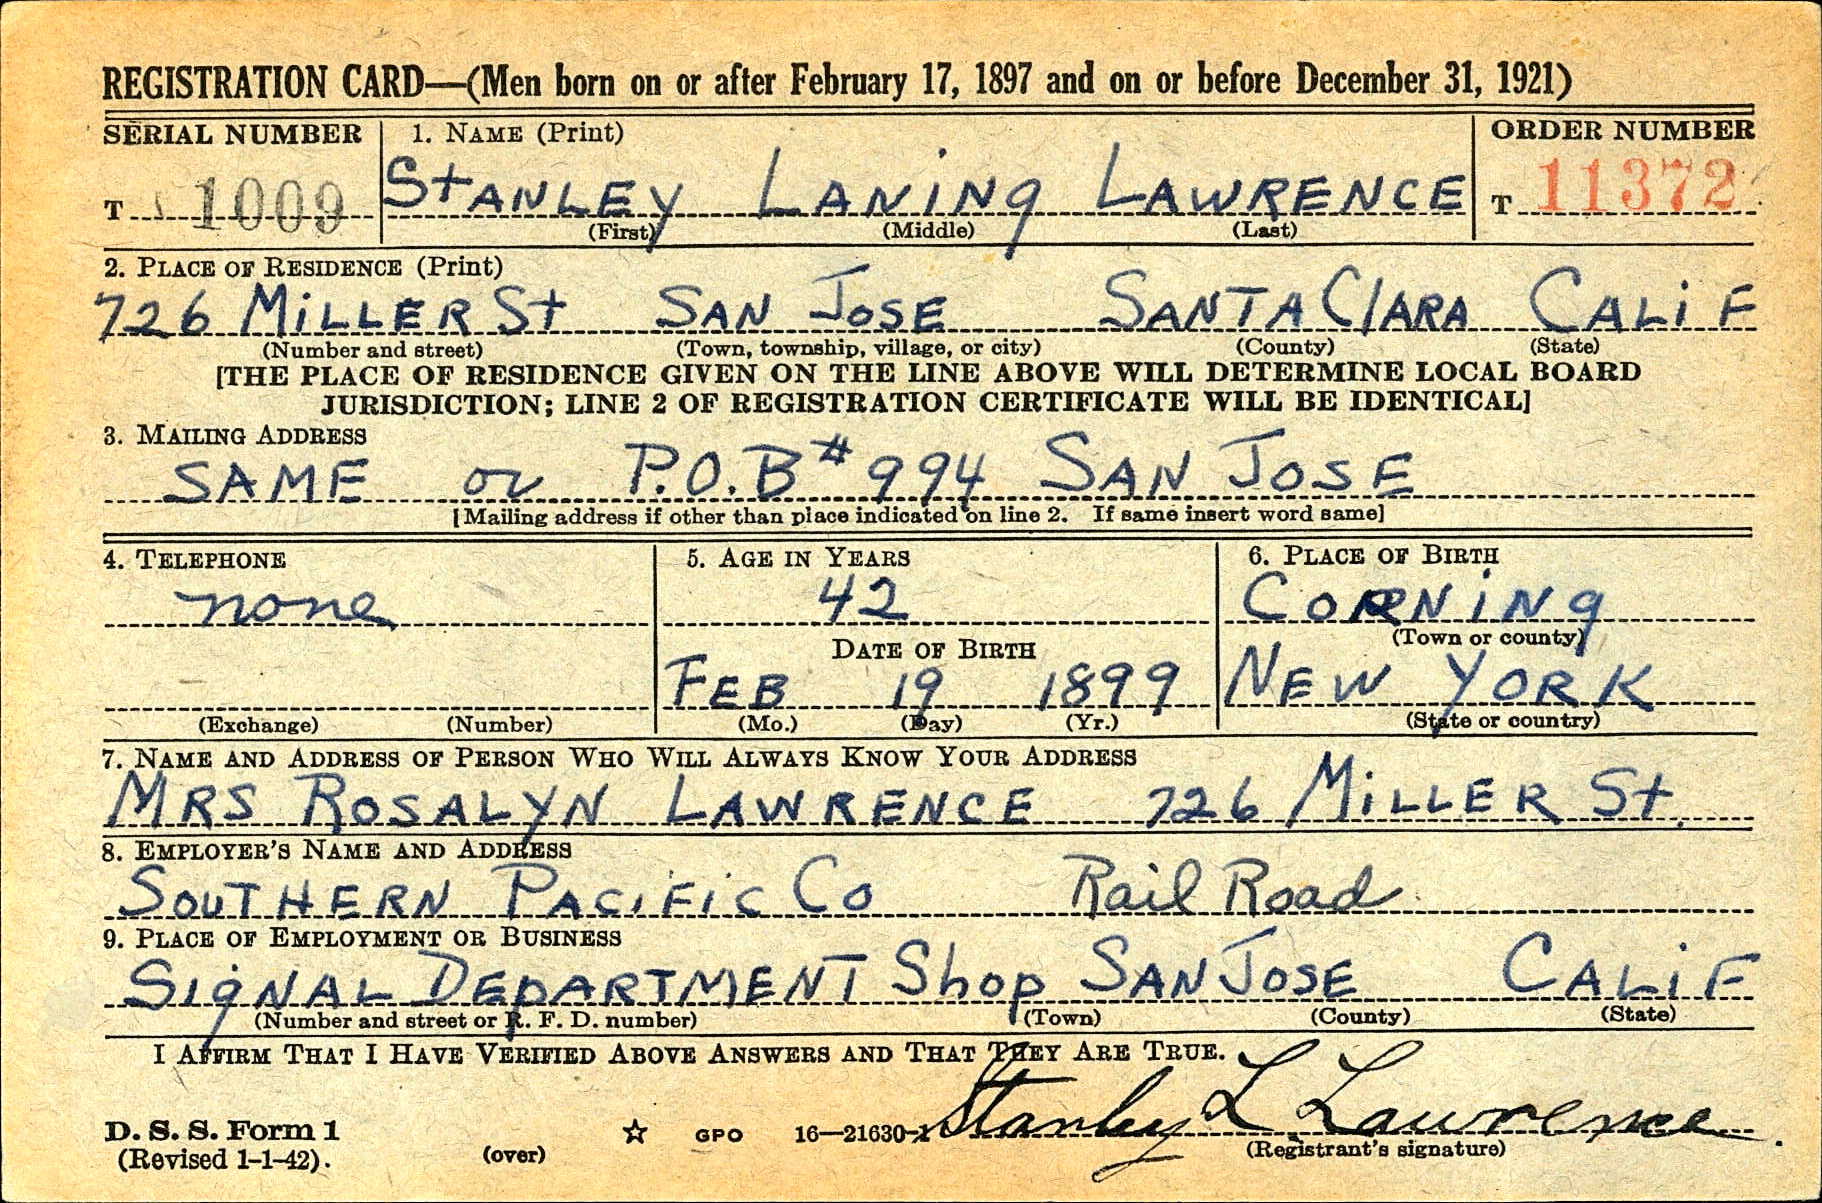 REGISTRATION CARD—(Men born on or after February 17, 1897 and on or before December 31, 1921)
SERIAL NUMBER 1. NAME (Print) ORDER NUMBER
T 1009 STANLEY LANING LAWRENCE T 11372
(First) (Middle) (Last)
2. PLACE OF RESIDENCE (Print)
726 MiLLER St SAN JOSE SANTA ClARA CALiF
(Number and street) (Town, township, village, or city) (County) (State)
[THE PLACE OF RESIDENCE GIVEN ON THE LINE ABOVE WILL DETERMINE LOCAL BOARD
JURISDICTION; LINE 2 OF REGISTRATION CERTIFICATE WILL BE IDENTICAL]
3. MAILING ADDRESS
SAME or P.O.B # 994 SAN JOSE
[Mailing address if other than place indicated on line 2. If same insert word same]
4. TELEPHONE 5. AGE IN YEARS 6. PLACE OF BIRTH
none 42 CORNiNg
(Town or county)
DATE OF BIRTH
FEB 19 1899 NEW YORK
(Exchange) (Number) (Mo.) (Day) (Yr.) (State or country)
7. NAME AND ADDRESS OF PERSON WHO WILL ALWAYS KNOW YOUR ADDRESS
MRS ROSALYN LAWRENCE 726 MiLLER St.
8. EMPLOYER'S NAME AND ADDRESS
SOUTHERN PACiFiC Co Rail Road
9. PLACE OF EMPLOYMENT OR BUSINESS
SigNAL DEpARTMENT Shop SAN JOSE CALiF
(Number and street or R. F. D. number) (Town) (County) (State)
I AFFIRM THAT I HAVE VERIFIED ABOVE ANSWERS AND THAT THEY ARE TRUE.
D. S. S. Form 1
(Revised 1-1-42). (over) GPO 16—21630-1 Stanley L Lawrence.
(Registrant's signature)